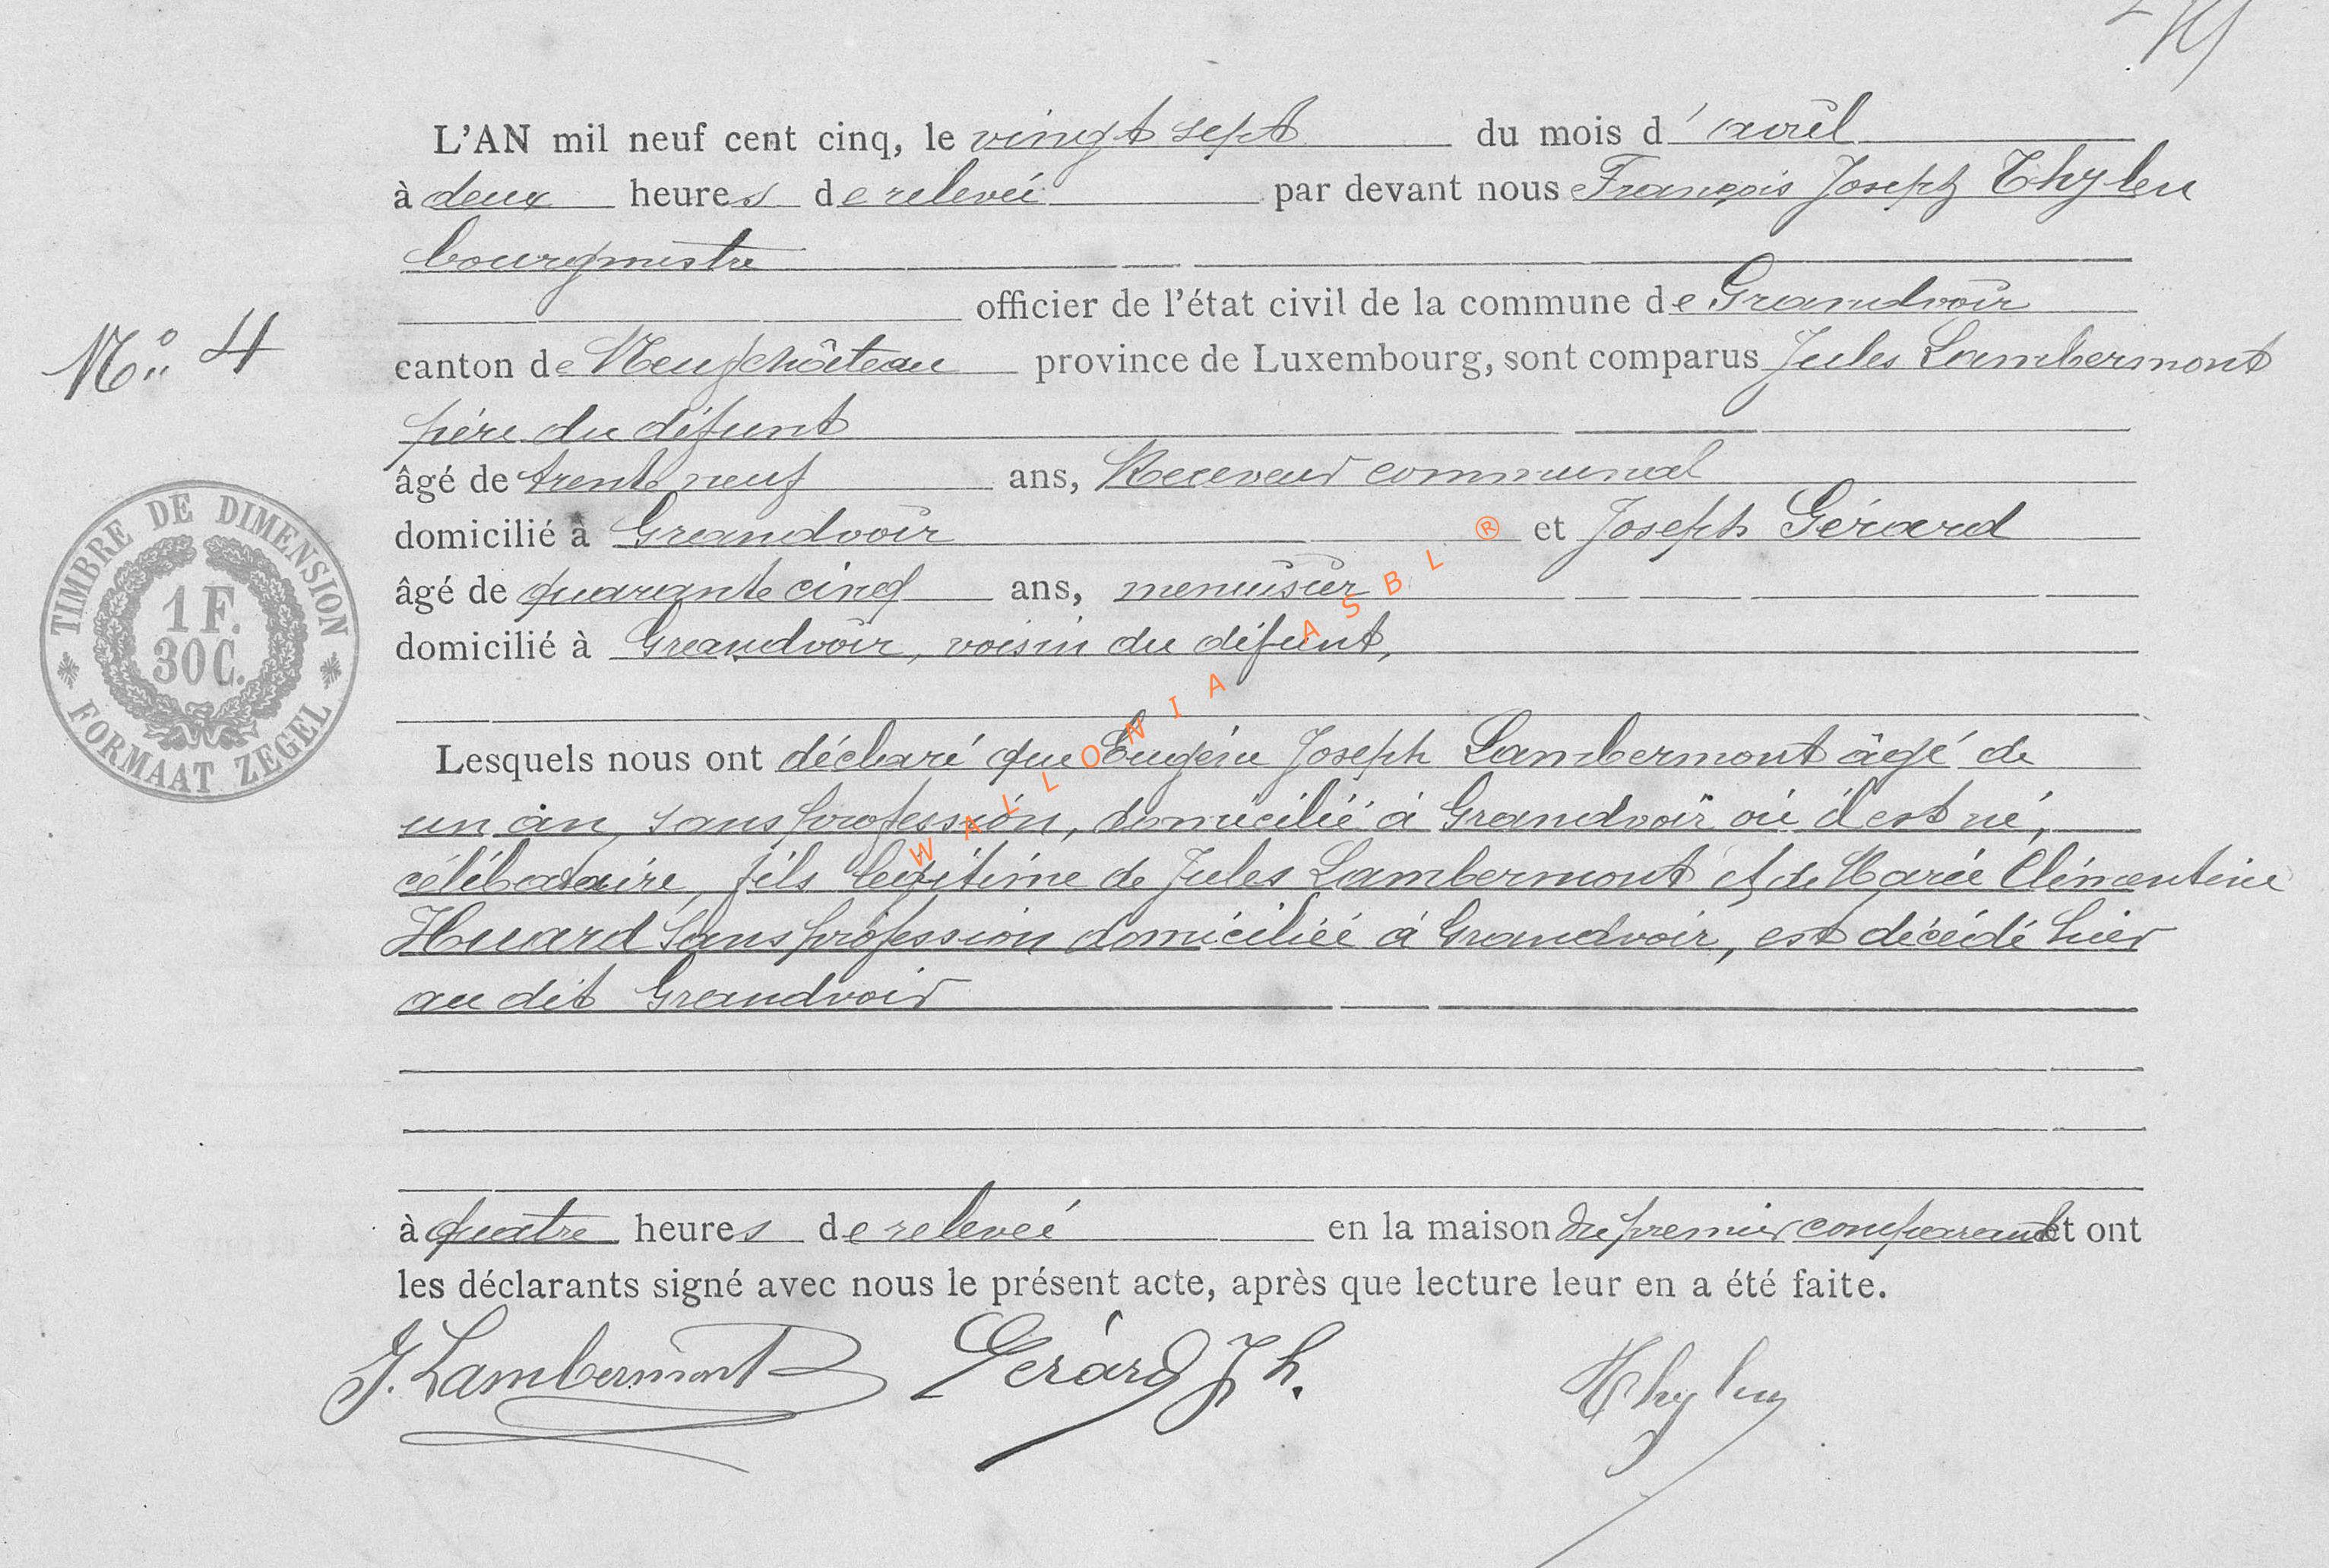 L'AN mil neuf cent cinq, le vingt sept du mois d'avril
à deux heures de relevée par devant nous François Joseph Thylen
bourgmestre
officier de l'état civil de la commune de Grandvoir
N° 4
canton de Neufchâteau province de Luxembourg, sont comparus Jules Lambermont
père du défunt
âgé de trente neuf ans, Receveur communal
domicilié à Grandvoir et Joseph Gérard
âgé de quarante cinq ans, menuisier
domicilié à Grandvoir, voisin du défunt,
TIMBRE DE DIMENSION
1 F.
30 C.
FORMAAT ZEGEL
WALLONIA ASBL ®
Lesquels nous ont déclaré que Eugène Joseph Lambermont âgé de
un an, sans profession, domicilié à Grandvoir où il est né,
célibataire, fils légitime de Jules Lambermont et de Marie Clémentine
Huard sans profession domiciliée à Grandvoir, est décédé hier
au dit Grandvoir
à quatre heures de relevée en la maison du premier comparant et ont
les déclarants signé avec nous le présent acte, après que lecture leur en a été faite.
J. Lambermont Gérard Jh. Thylen